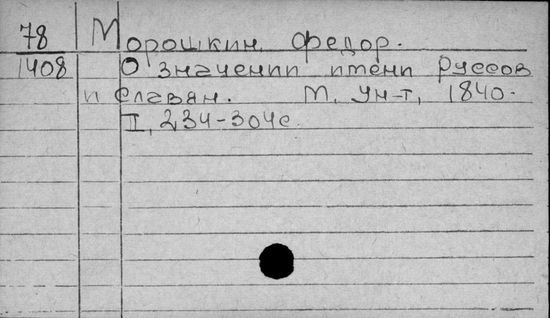 78 Морошкин, Федор.
1408 О значении имени Руссов
и Славян. М. Ун-т, 1840.
I, 234-304с.